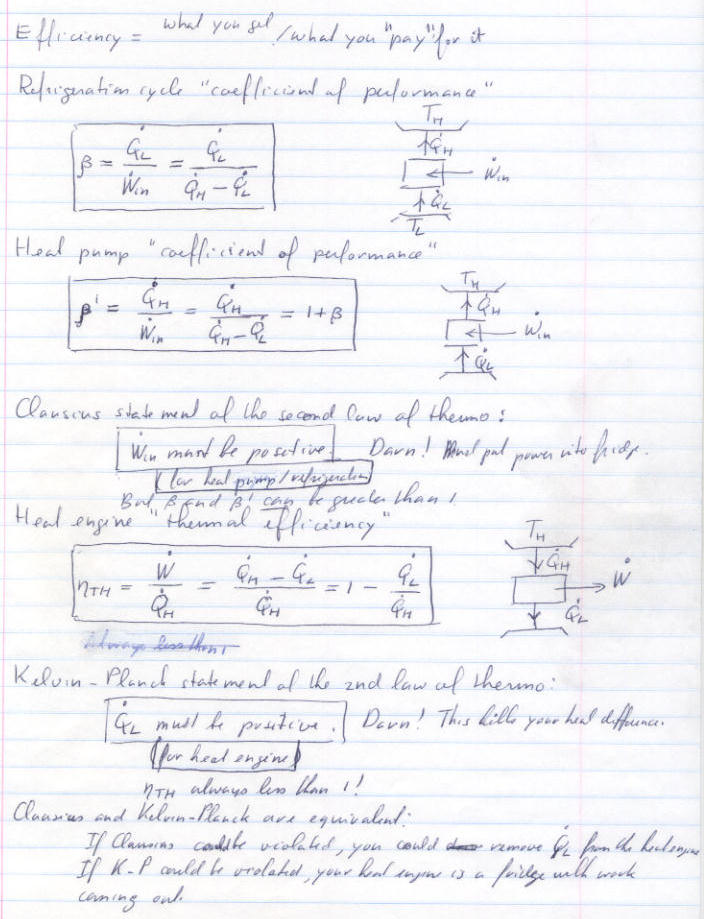 Efficiency = what you get / what you "pay" for it
Refrigeration cycle "coefficient of performance"
β = Q̇L / Ẇin = Q̇L / (Q̇H − Q̇L)
TH
Q̇H
Ẇin
Q̇L
TL
Heat pump "coefficient of performance"
β' = Q̇H / Ẇin = Q̇H / (Q̇H − Q̇L) = 1 + β
TH
Q̇H
Ẇin
Q̇L
Clausius statement of the second law of thermo:
Ẇin must be positive. Darn! Must put power into fridge.
(for heat pump/refrigeration)
But β and β' can be greater than 1
Heat engine "thermal efficiency"
ηTH = Ẇ / Q̇H = (Q̇H − Q̇L) / Q̇H = 1 − Q̇L / Q̇H
TH
Q̇H
Ẇ
Q̇L
Always less than 1
Kelvin-Planck statement of the 2nd law of thermo:
Q̇L must be positive. Darn! This kills your heat difference.
(for heat engine)
ηTH always less than 1!
Clausius and Kelvin-Planck are equivalent:
If Clausius could be violated, you could remove Q̇L from the heat engine
If K-P could be violated, your heat engine is a fridge with work
coming out.